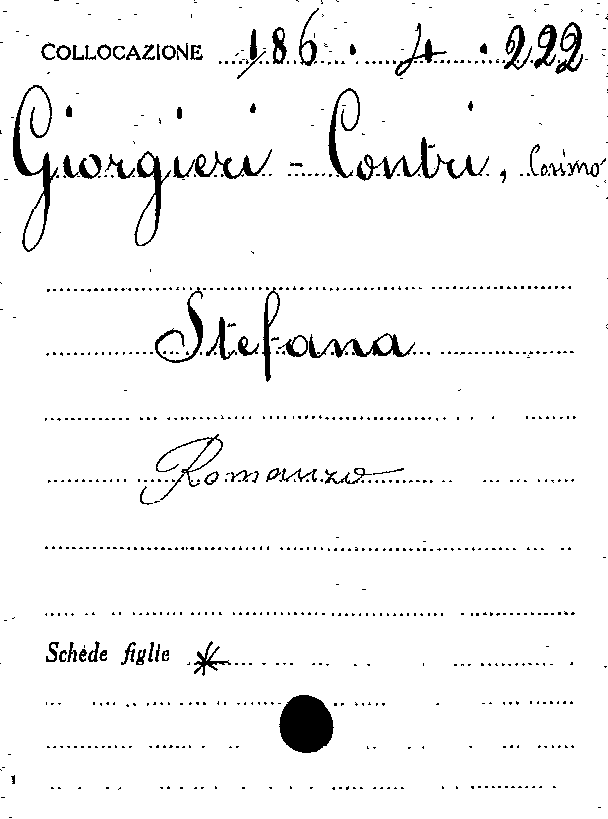 COLLOCAZIONE 186 . 4 . 222
Giorgieri - Contri, Cosimo
Stefana
Romanzo
Schede figlie *
1